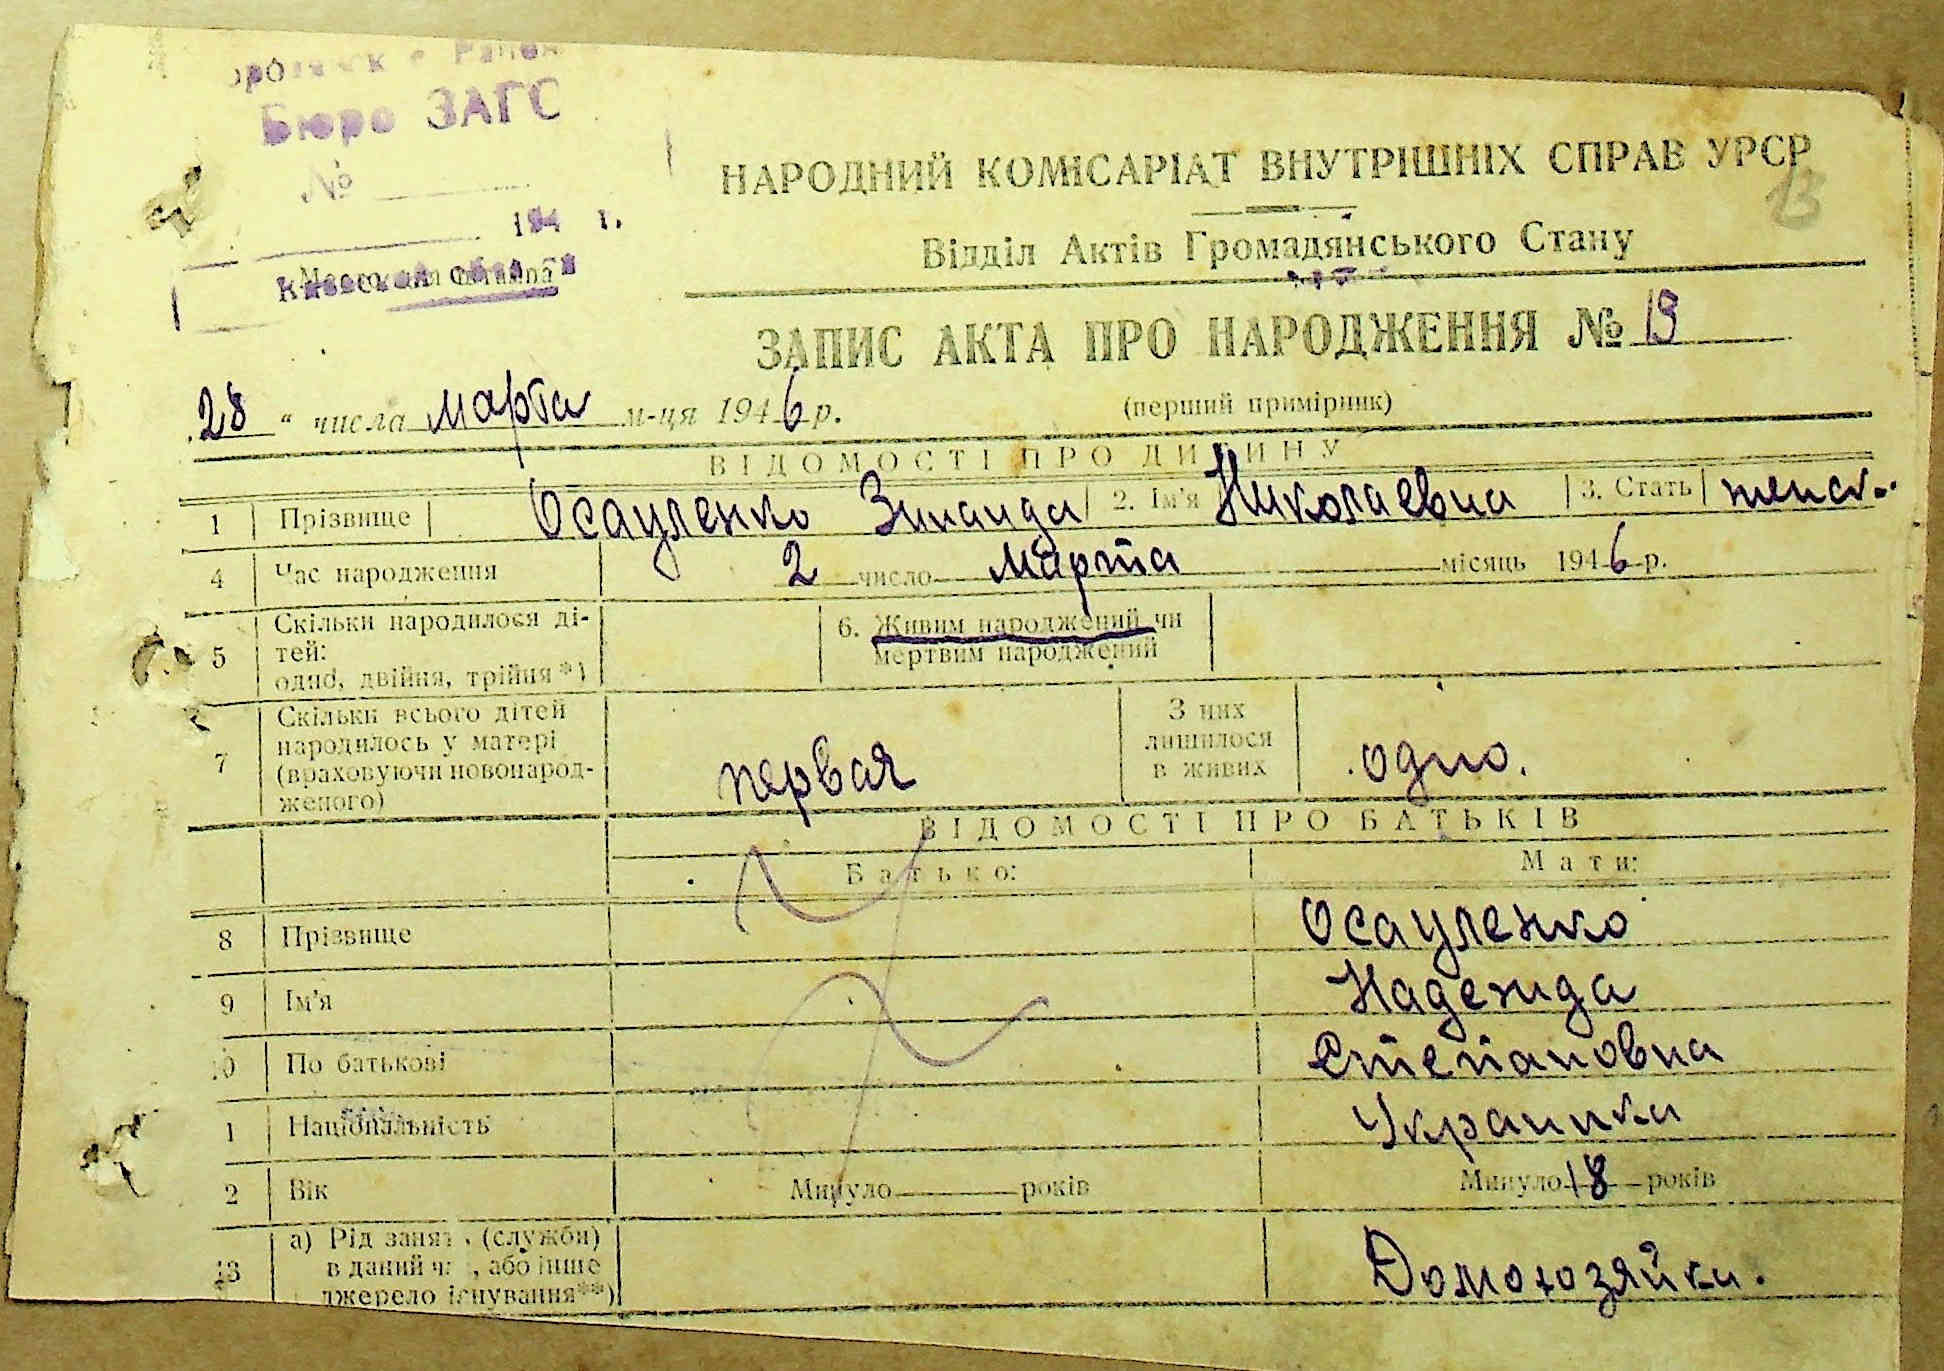 Бюро ЗАГС
№
194 г.
Киевской
НАРОДНИЙ КОМІСАРІАТ ВНУТРІШНІХ СПРАВ УРСР
13
Відділ Актів Громадянського Стану
ЗАПИС АКТА ПРО НАРОДЖЕННЯ № 13
28 " числа марта м-ця 1946 р.
(перший примірник)
ВІДОМОСТІ ПРО ДИТИНУ
1 Прізвище Осауленко Зинаида 2. Ім'я Николаевна 3. Стать женск.
4 Час народження 2 число марта місяць 1946 р.
5 Скільки народилося ді-
тей:
одно, двійня, трійня *)
6. Живим народжений чи
мертвим народжений
7 Скільки всього дітей
народилось у матері
(враховуючи новонарод-
женого)
первая
З них
лишилося
в живих
одно.
ВІДОМОСТІ ПРО БАТЬКІВ
Батько: Мати:
8 Прізвище Осауленко
9 Ім'я Надежда
10 По батькові Степановна
1 Національність Украинка
2 Вік Минуло років Минуло 18 років
13 а) Рід занят (служби)
в даний ч , або інше
джерело існування**)
Домохозяйка.